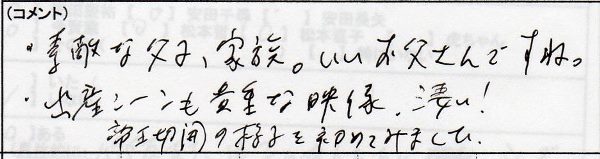 (コメント)
・素敵な父子、家族。いいお父さんですね。
・出産シーンも貴重な映像、凄い!
帝王切開の様子を初めてみました。